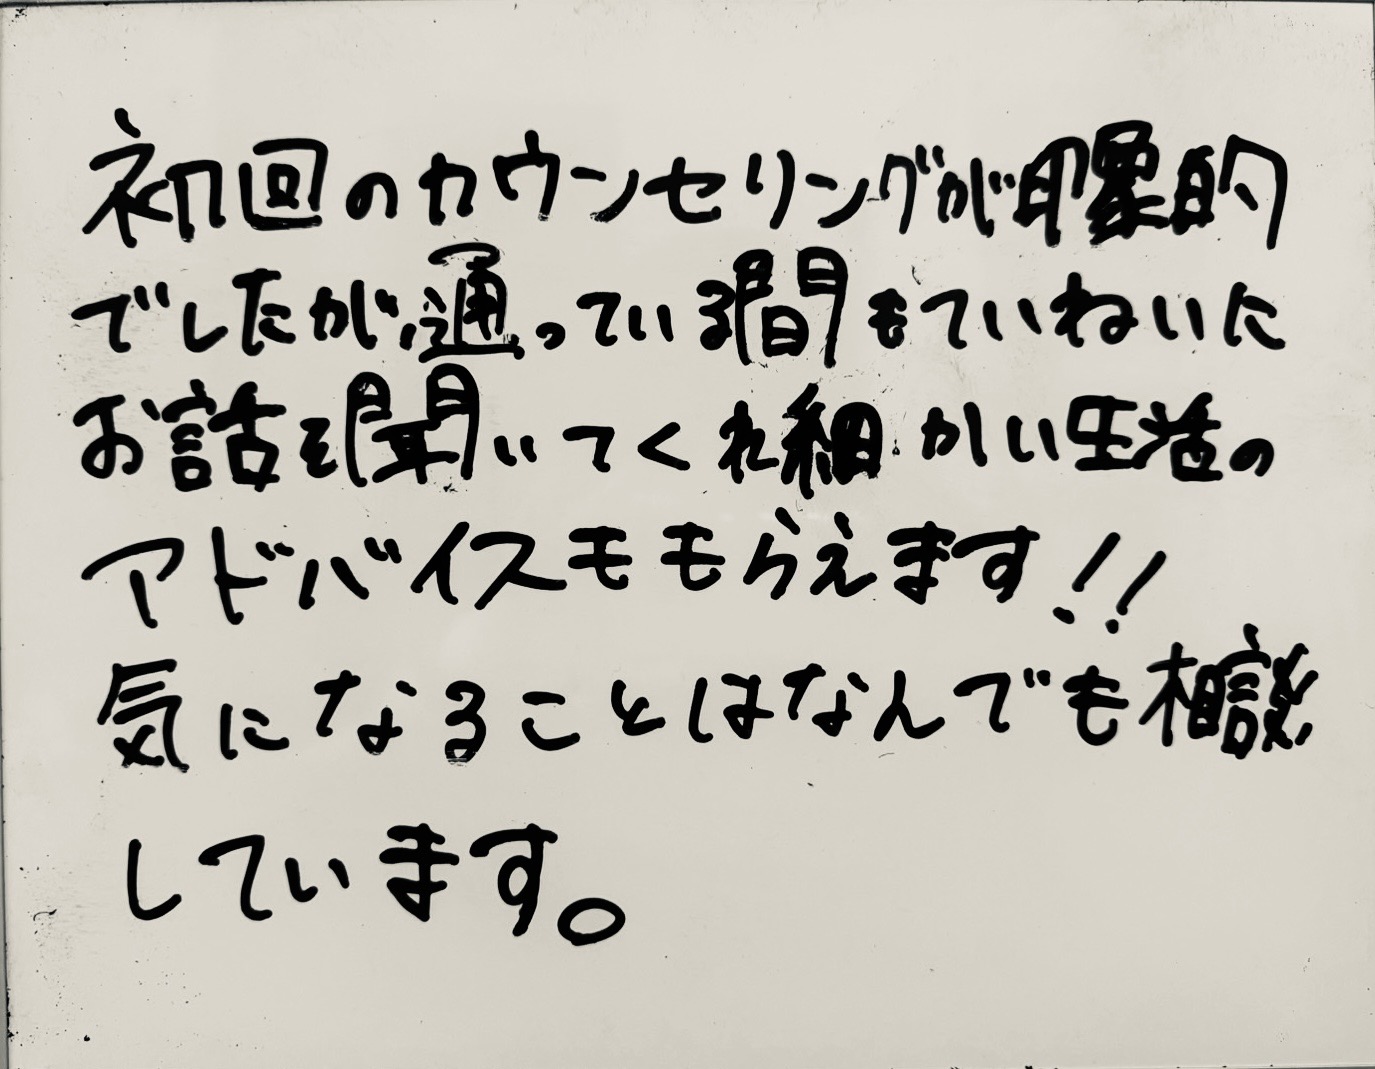 初回のカウンセリングが印象的
でしたが、通っている間もていねいに
お話を聞いてくれ細かい生活の
アドバイスももらえます!!
気になることはなんでも相談
しています。